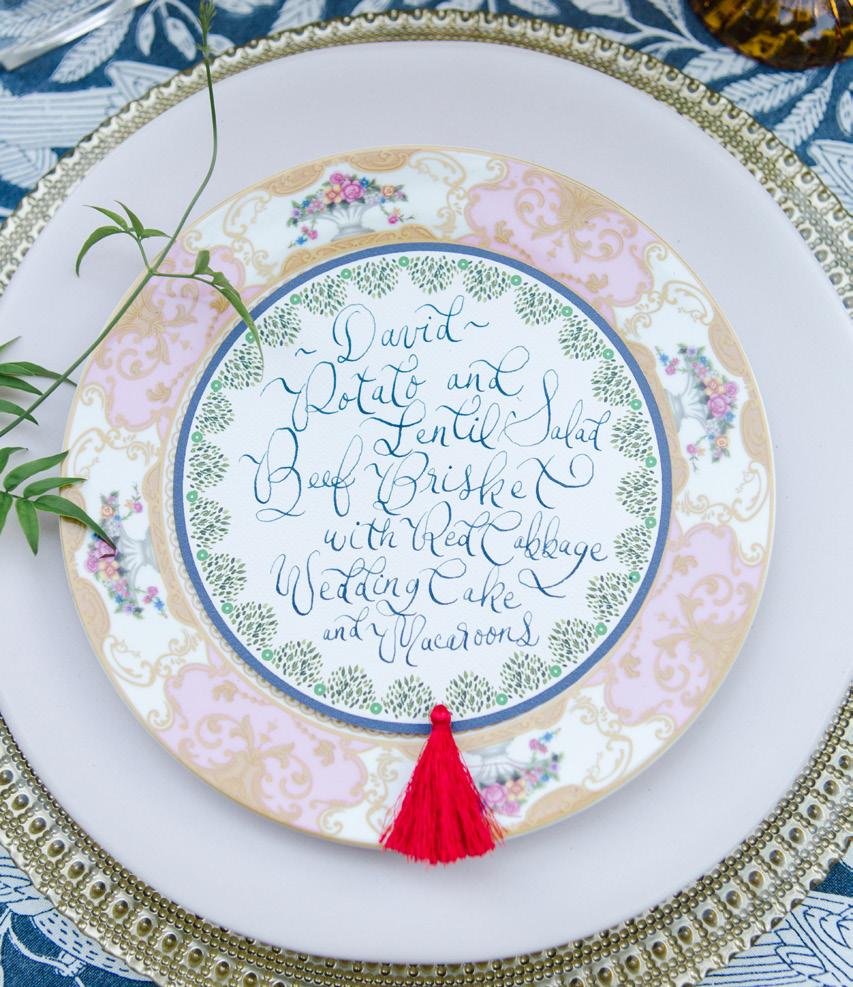 ~ David ~
Potato and
Lentil Salad
Beef Brisket
with Red Cabbage
Wedding Cake
and Macaroons